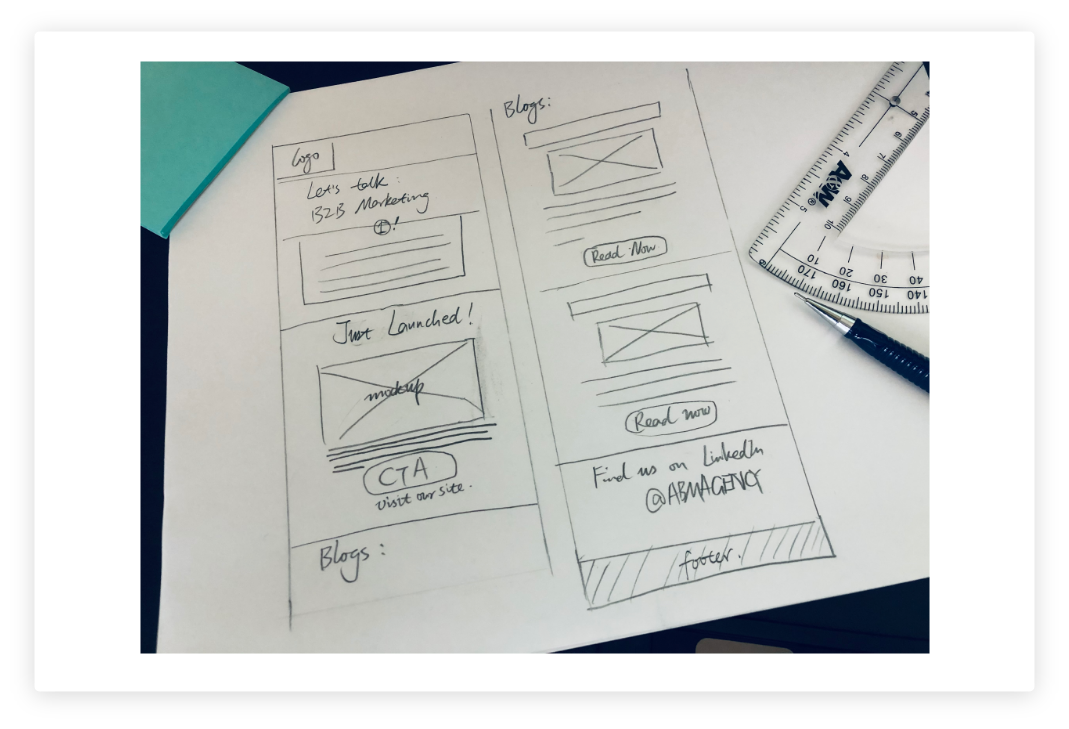 Logo
Let's talk:
B2B Marketing
!
Just Launched!
mockup
CTA
visit our site.
Blogs:
Blogs:
Read Now
Read now
Find us on LinkedIn
@ABMAGENCY
footer.
A&W
®
4
5
6
7
8
9
10
5
10
20
30
40
170
160
150
140